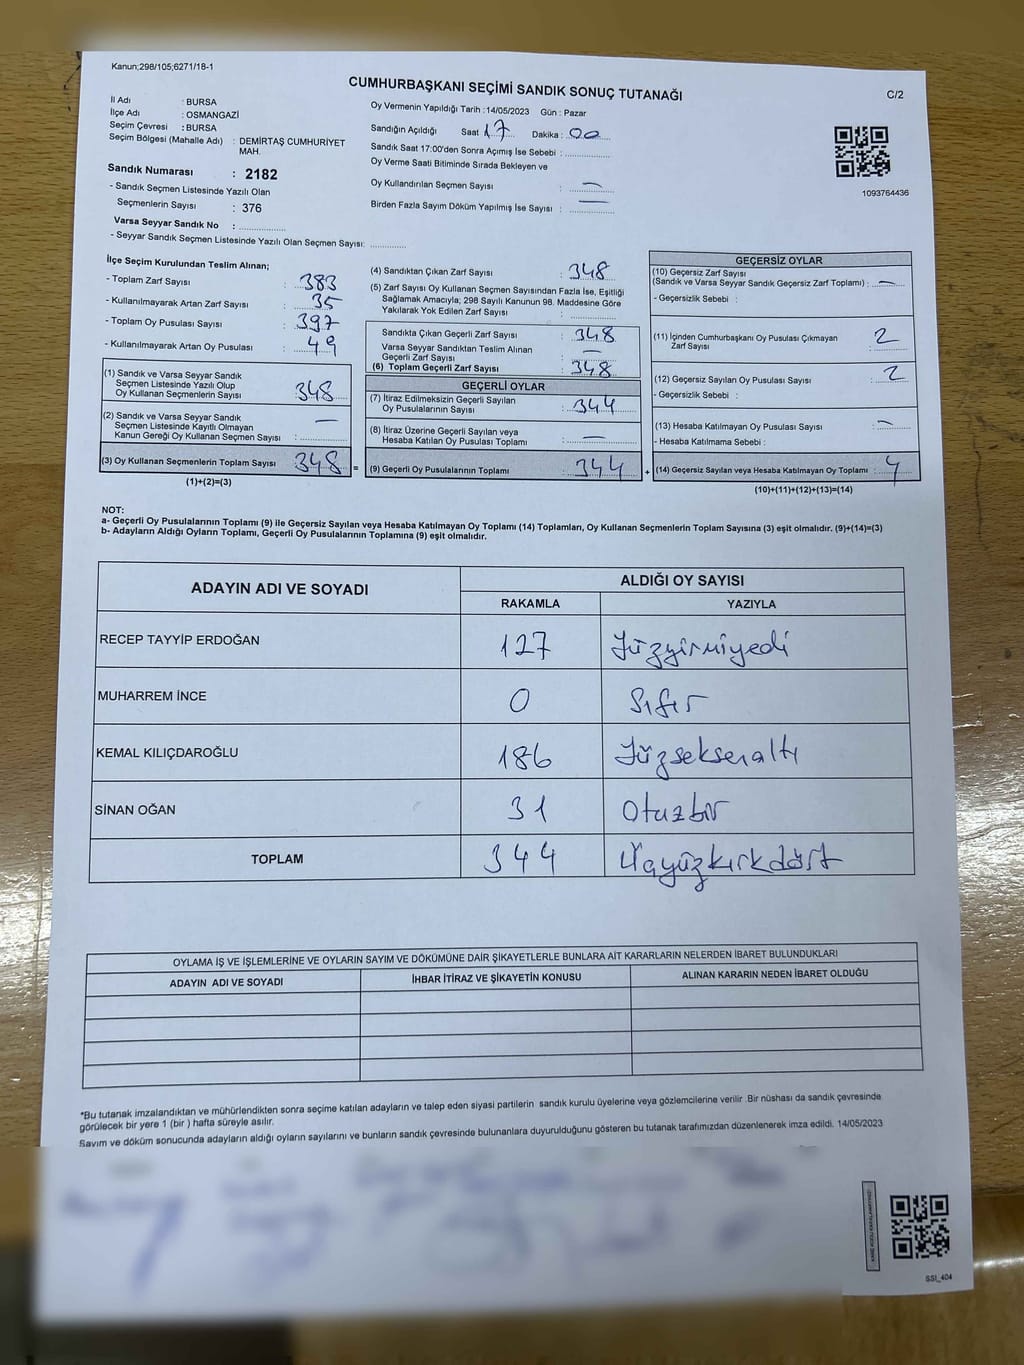 Kanun;298/105;6271/18-1
CUMHURBAŞKANI SEÇİMİ SANDIK SONUÇ TUTANAĞI
C/2
İl Adı : BURSA
İlçe Adı : OSMANGAZİ
Seçim Çevresi : BURSA
Seçim Bölgesi (Mahalle Adı) : DEMİRTAŞ CUMHURİYET
MAH.
Sandık Numarası : 2182
- Sandık Seçmen Listesinde Yazılı Olan
Seçmenlerin Sayısı : 376
Varsa Seyyar Sandık No :
- Seyyar Sandık Seçmen Listesinde Yazılı Olan Seçmen Sayısı:
Oy Vermenin Yapıldığı Tarih : 14/05/2023 Gün : Pazar
Sandığın Açıldığı Saat 17 Dakika : 00
Sandık Saat 17:00'den Sonra Açımış İse Sebebi :
Oy Verme Saati Bitiminde Sırada Bekleyen ve
Oy Kullandırılan Seçmen Sayısı : —
Birden Fazla Sayım Döküm Yapılmış İse Sayısı : —
1093764436
İlçe Seçim Kurulundan Teslim Alınan;
- Toplam Zarf Sayısı : 383
- Kullanılmayarak Artan Zarf Sayısı : 35
- Toplam Oy Pusulası Sayısı : 397
- Kullanılmayarak Artan Oy Pusulası : 49
(1) Sandık ve Varsa Seyyar Sandık
Seçmen Listesinde Yazılı Olup
Oy Kullanan Seçmenlerin Sayısı : 348
(2) Sandık ve Varsa Seyyar Sandık
Seçmen Listesinde Kayıtlı Olmayan
Kanun Gereği Oy Kullanan Seçmen Sayısı : —
(3) Oy Kullanan Seçmenlerin Toplam Sayısı 348 =
(1)+(2)=(3)
(4) Sandıktan Çıkan Zarf Sayısı : 348
(5) Zarf Sayısı Oy Kullanan Seçmen Sayısından Fazla İse, Eşitliği
Sağlamak Amacıyla; 298 Sayılı Kanunun 98. Maddesine Göre
Yakılarak Yok Edilen Zarf Sayısı :
Sandıkta Çıkan Geçerli Zarf Sayısı : 348
Varsa Seyyar Sandıktan Teslim Alınan
Geçerli Zarf Sayısı : —
(6) Toplam Geçerli Zarf Sayısı : 348
GEÇERLİ OYLAR
(7) İtiraz Edilmeksizin Geçerli Sayılan
Oy Pusulalarının Sayısı : 344
(8) İtiraz Üzerine Geçerli Sayılan veya
Hesaba Katılan Oy Pusulası Toplamı : —
(9) Geçerli Oy Pusulalarının Toplamı : 344 +
GEÇERSİZ OYLAR
(10) Geçersiz Zarf Sayısı
(Sandık ve Varsa Seyyar Sandık Geçersiz Zarf Toplamı) : —
- Geçersizlik Sebebi :
(11) İçinden Cumhurbaşkanı Oy Pusulası Çıkmayan
Zarf Sayısı : 2
(12) Geçersiz Sayılan Oy Pusulası Sayısı : 2
- Geçersizlik Sebebi :
(13) Hesaba Katılmayan Oy Pusulası Sayısı : —
- Hesaba Katılmama Sebebi :
(14) Geçersiz Sayılan veya Hesaba Katılmayan Oy Toplamı : 4
(10)+(11)+(12)+(13)=(14)
NOT:
a- Geçerli Oy Pusulalarının Toplamı (9) ile Geçersiz Sayılan veya Hesaba Katılmayan Oy Toplamı (14) Toplamları, Oy Kullanan Seçmenlerin Toplam Sayısına (3) eşit olmalıdır. (9)+(14)=(3)
b- Adayların Aldığı Oyların Toplamı, Geçerli Oy Pusulalarının Toplamına (9) eşit olmalıdır.
ADAYIN ADI VE SOYADI
ALDIĞI OY SAYISI
RAKAMLA YAZIYLA
RECEP TAYYİP ERDOĞAN 127 Yüzyirmiyedi
MUHARREM İNCE 0 Sıfır
KEMAL KILIÇDAROĞLU 186 Yüzseksenaltı
SİNAN OĞAN 31 Otuzbir
TOPLAM 344 Üçyüzkırkdört
OYLAMA İŞ VE İŞLEMLERİNE VE OYLARIN SAYIM VE DÖKÜMÜNE DAİR ŞİKAYETLERLE BUNLARA AİT KARARLARIN NELERDEN İBARET BULUNDUKLARI
ADAYIN ADI VE SOYADI İHBAR İTİRAZ VE ŞİKAYETİN KONUSU ALINAN KARARIN NEDEN İBARET OLDUĞU
*Bu tutanak imzalandıktan ve mühürlendikten sonra seçime katılan adayların ve talep eden siyasi partilerin sandık kurulu üyelerine veya gözlemcilerine verilir .Bir nüshası da sandık çevresinde
görülecek bir yere 1 (bir ) hafta süreyle asılır.
Sayım ve döküm sonucunda adayların aldığı oyların sayılarını ve bunların sandık çevresinde bulunanlara duyurulduğunu gösteren bu tutanak tarafımızdan düzenlenerek imza edildi. 14/05/2023
SSI_404